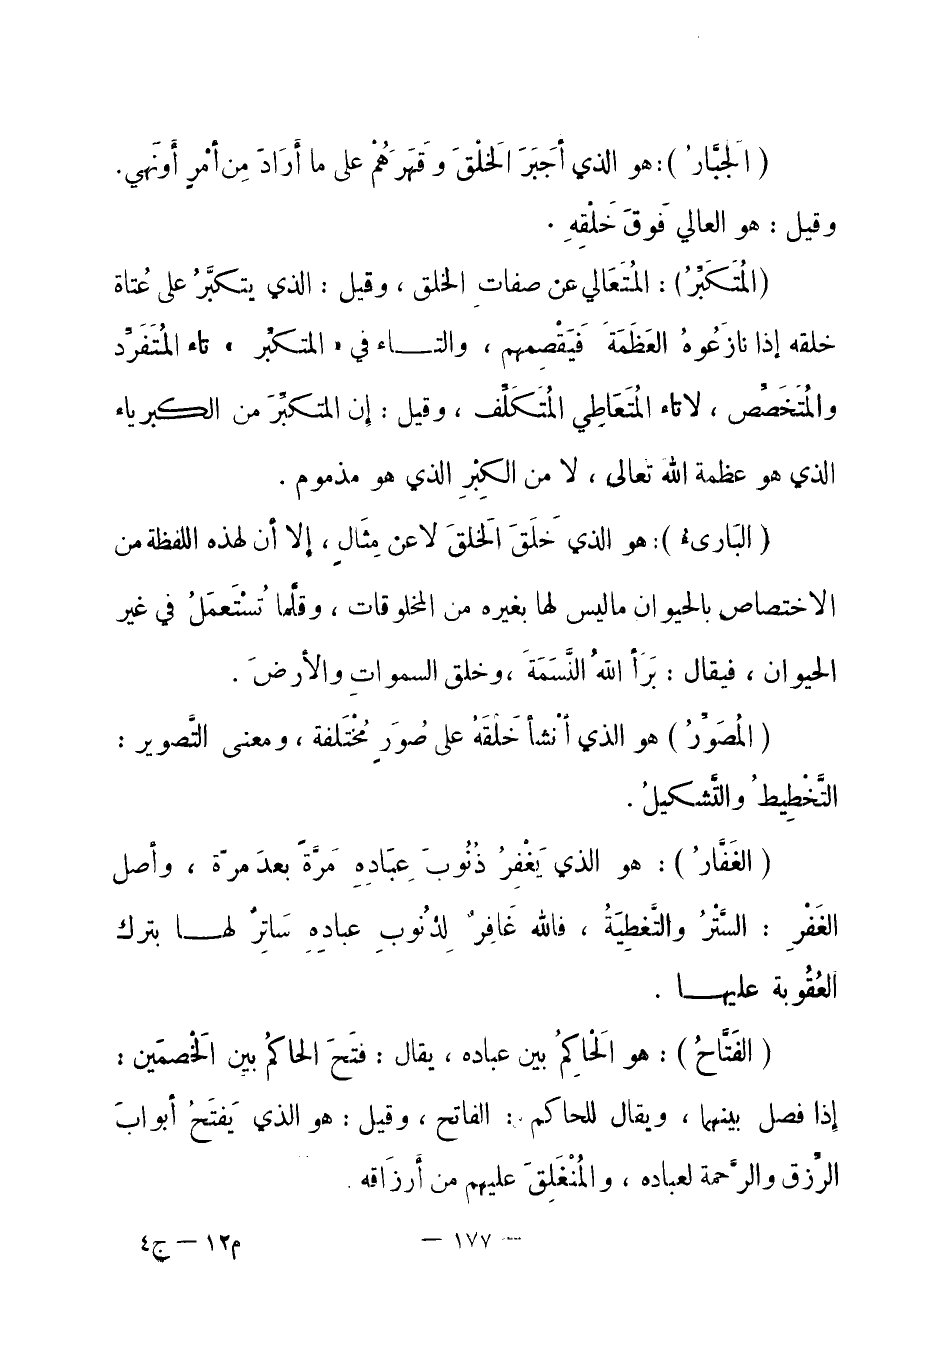 ( الْجَبَّارُ ): هو الذي أَجبَرَ الْخَلْقَ وقَهَرَهُمْ على ما أَرَادَ مِن أَمْرٍ أَونَهي.
وقيل : هو العالي فَوقَ خَلْقِهِ .
(الْمُتَكَبِّرُ) : الْمُتَعَالي عن صفاتِ الخلق ، وقيل : الذي يتكبَّرُ على عُتاة
خلقه إذا نازَعُوهُ العَظَمَةَ فَيَقْصِمهم ، والتاء في « المتكبِّر » تاء الْمُتَفَرِّد
والْمُتَخَصِّص ، لا تاء الْمُتَعَاطِي الْمُتَكَلِّف ، وقيل : إن المتكبِّرَ من الكبرياء
الذي هو عظمة اللهَ تعالى ، لا من الكِبْرِ الذي هو مذموم .
( البَارىءُ ): هو الذي خَلَقَ الْخَلقَ لا عن مِثَالٍ ، إلا أن لهذه اللفظة من
الاختصاصِ بالحيوان ماليس لها بغيره من المخلوقات ، وقلَّما تُسْتَعمَلُ في غير
الحيوان ، فيقال : بَرَأَ اللهُ النَّسَمَةَ ،وخلق السمواتِ والأرضَ .
( الْمُصَوِّرُ ) هو الذي أَنْشأ خَلْقَهُ على صُوَرٍ مُخْتَلفة ، ومعنى التَّصوير :
التَّخْطِيطُ والتَّشكيلُ .
( الغَفَّارُ ) : هو الذي يَغْفِرُ ذُنُوبَ عِبَادِهِ مَرَّةً بعدَ مرَّة ، وأصل
الغَفْرِ : السَّتْرُ والتَّغطِيَةُ ، فالله غَافِرٌ لِذُنُوبِ عبادِهِ سَاتِرٌ لها بترك
العُقُوبة عليها .
( الفَتَّاحُ ) : هو الْحَاكِمُ بين عباده ، يقال : فتَحَ الحاكمُ بين الْخَصمَين :
إذا فصل بينهما ، ويقال للحاكم : الفاتح ، وقيل : هو الذي يَفتَحُ أبوابَ
الرِّزق والرَّحمة لعباده ، والْمُنْغَلِقَ عليهم من أَرزَاقه .
— ١٧٧ —
م١٢ — ج٤